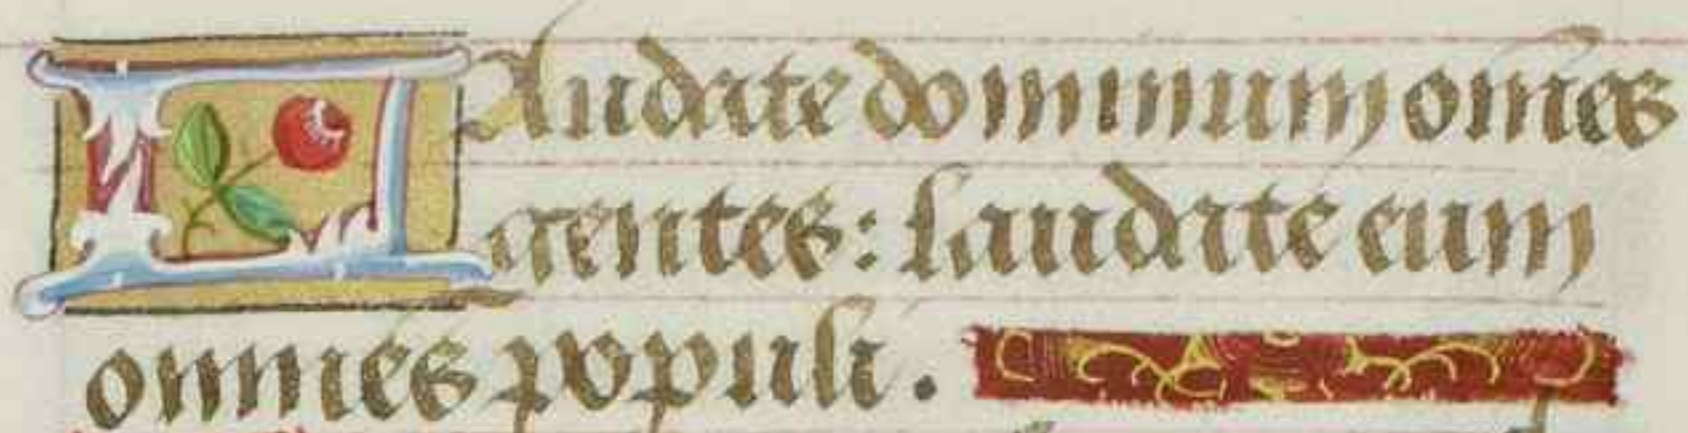 Laudate dominum om̅es
gentes: laudate eum
omnies populi.